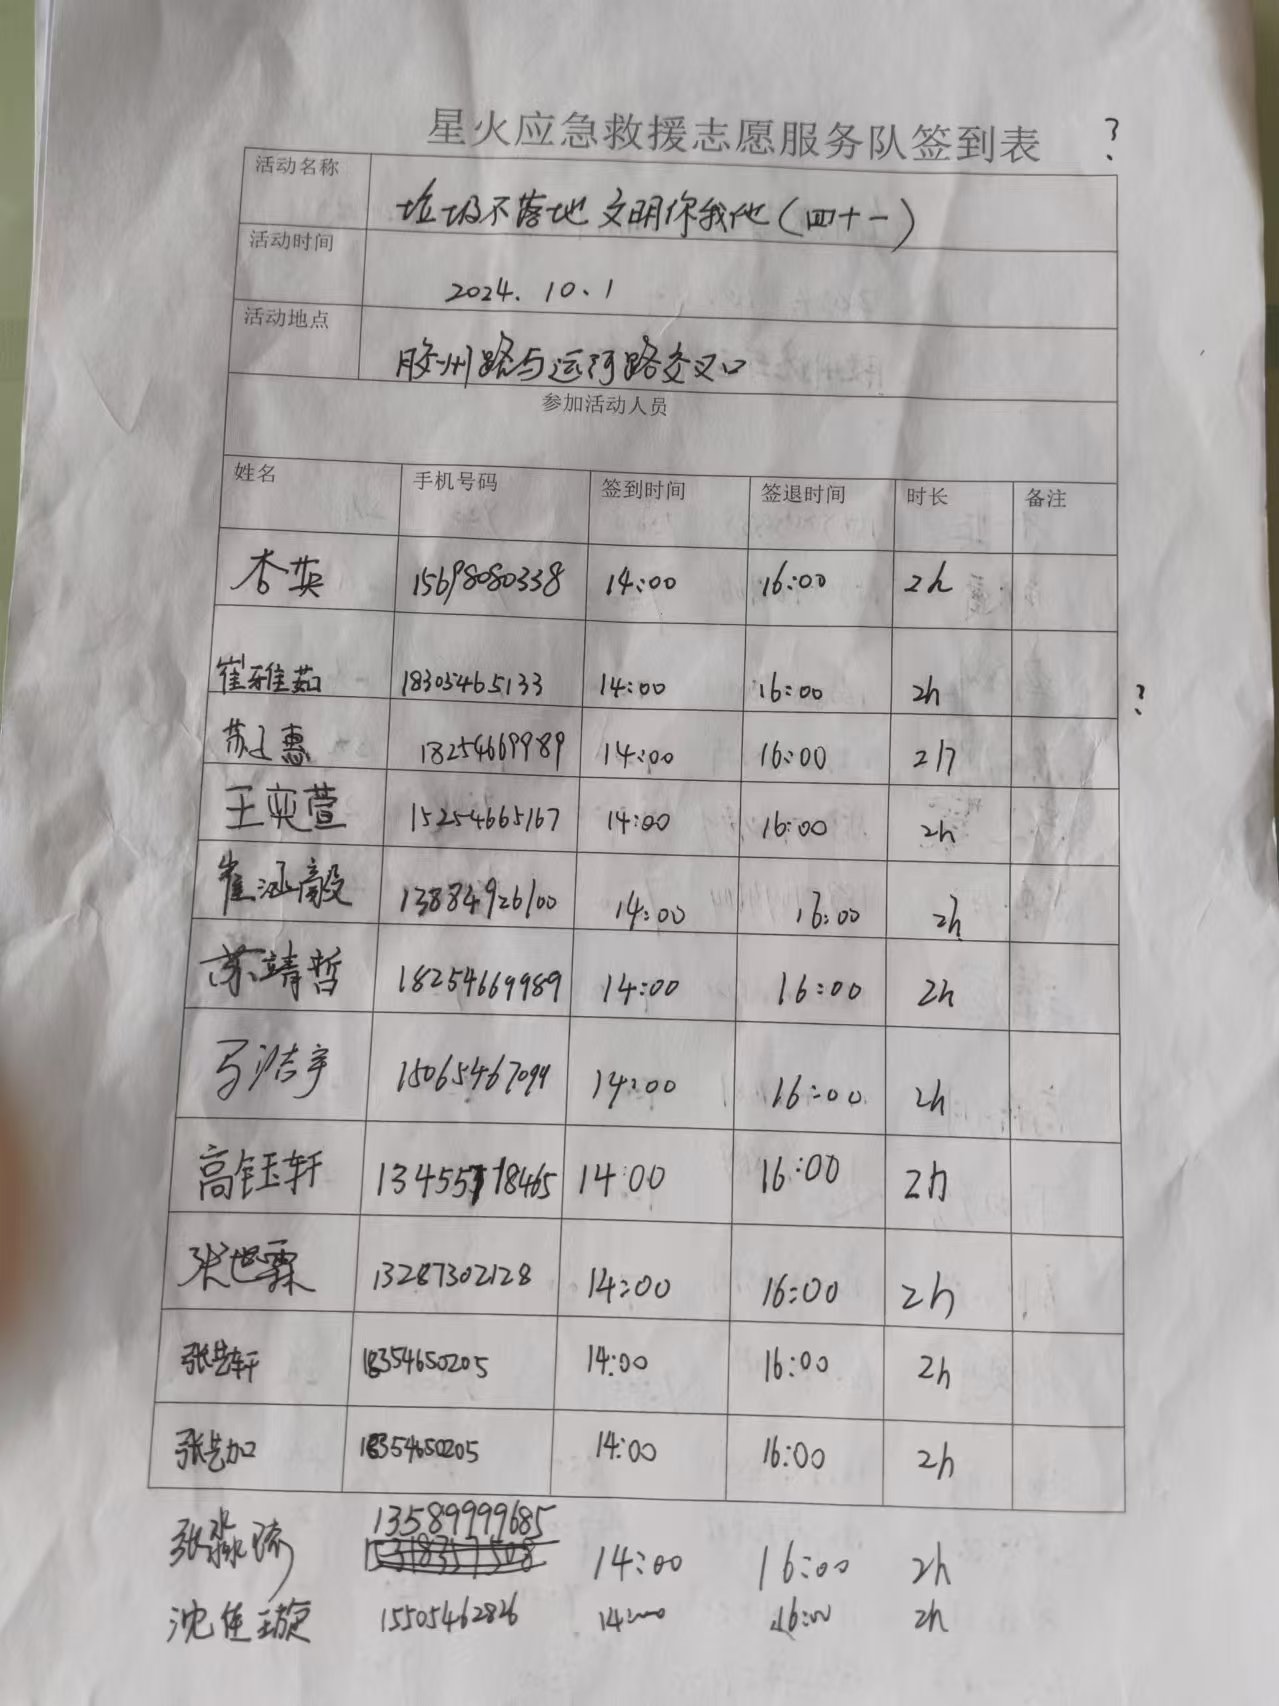 星火应急救援志愿服务队签到表 ?
活动名称 垃圾不落地 文明你我他(四十一)
活动时间 2024.10.1
活动地点 胶州路与运河路交叉口
参加活动人员
姓名 手机号码 签到时间 签退时间 时长 备注
李英 15698080338 14:00 16:00 2h
崔雅茹 18305465133 14:00 16:00 2h ?
苏 惠 18254669989 14:00 16:00 2h
王奕萱 15254665167 14:00 16:00 2h
崔涵毅 13884926100 14:00 16:00 2h
苏靖哲 18254669989 14:00 16:00 2h
马浩宇 15065467099 14:00 16:00 2h
高钰轩 14:00 16:00 2h
张世霖 13287302128 14:00 16:00 2h
张艺轩 18354650205 14:00 16:00 2h
张艺加 18354650205 14:00 16:00 2h
13589999685
张淼 15318357508 14:00 16:00 2h
沈佳璇 15505462826 14:00 16:00 2h